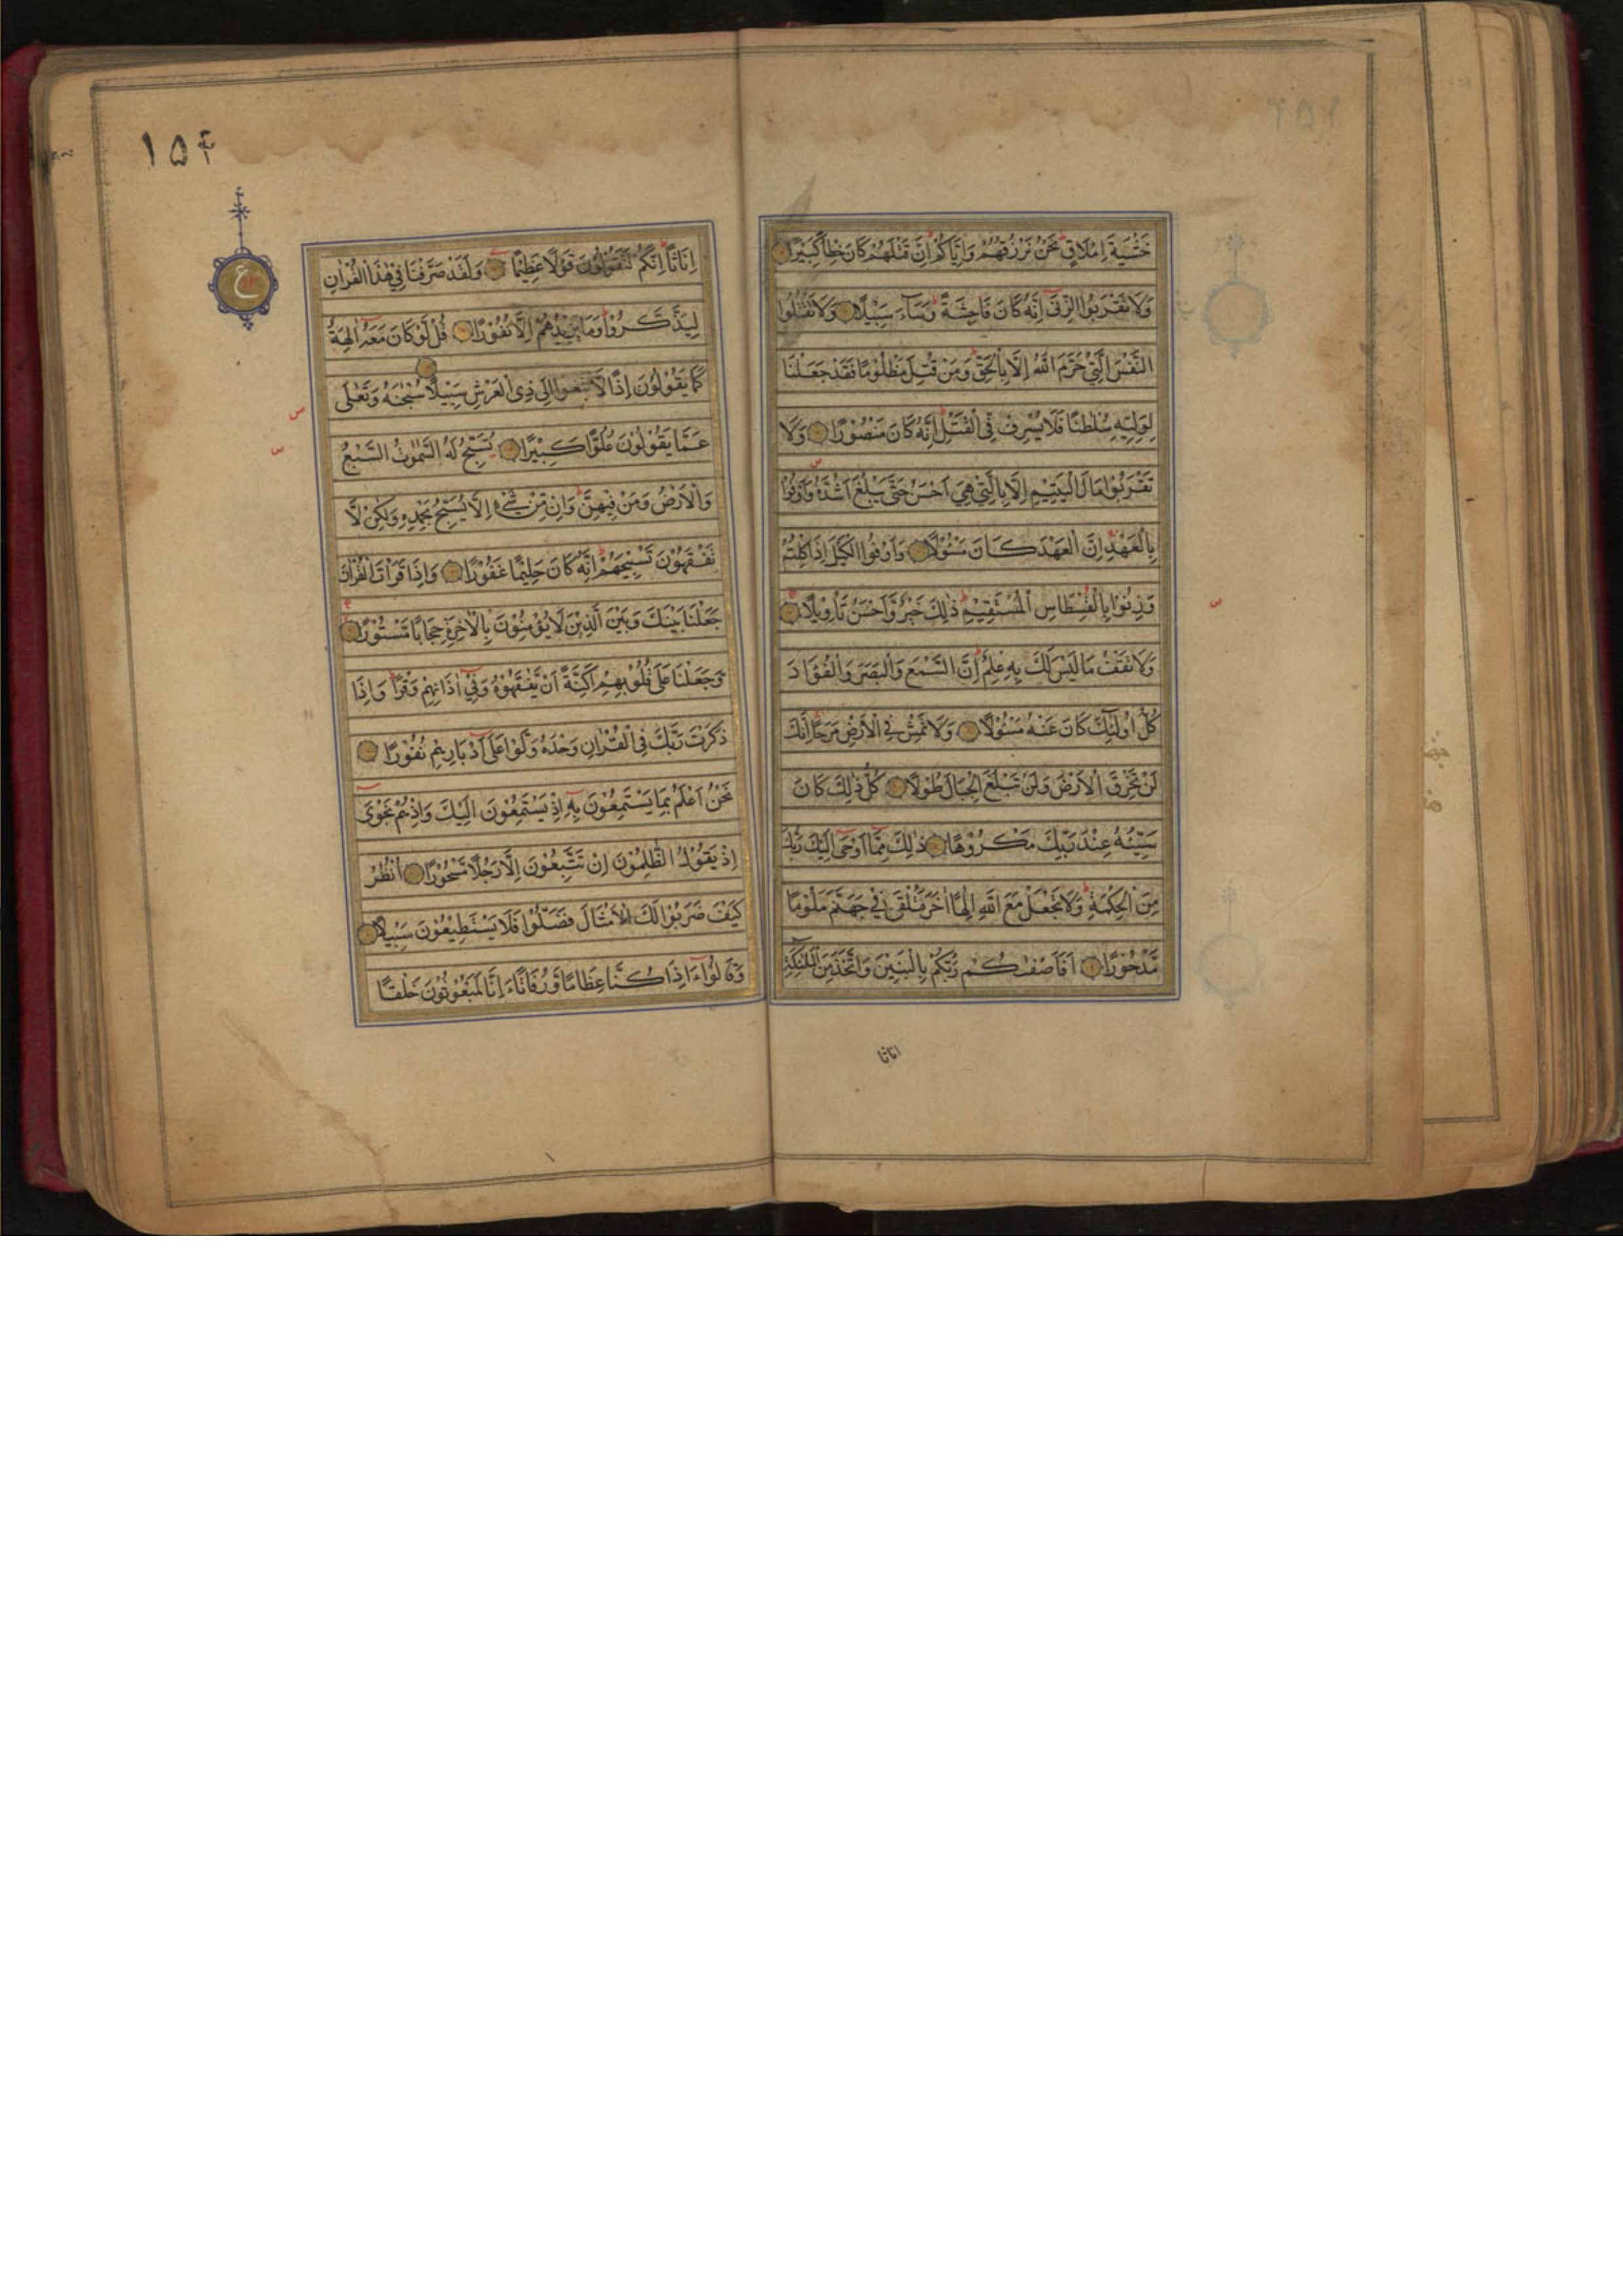 خَشْيَةَ اِمْلَاقٍ نَحْنُ نَرْزُقُهُمْ وَاِيَّاكُمْ اِنَّ قَتْلَهُمْ كَانَ خِطْاً كَبِيْرًا
وَلَا تَقْرَبُوا الزِّنٰى اِنَّهُ كَانَ فَاحِشَةً وَسَآءَ سَبِيْلًا وَلَا تَقْتُلُوا
النَّفْسَ الَّتِيْ حَرَّمَ اللّٰهُ اِلَّا بِالْحَقِّ وَمَنْ قُتِلَ مَظْلُوْمًا فَقَدْ جَعَلْنَا
لِوَلِيِّهٖ سُلْطٰنًا فَلَا يُسْرِفْ فِى الْقَتْلِ اِنَّهُ كَانَ مَنْصُوْرًا وَلَا
تَقْرَبُوْا مَالَ الْيَتِيْمِ اِلَّا بِالَّتِيْ هِيَ اَحْسَنُ حَتّٰى يَبْلُغَ اَشُدَّهُ وَاَوْفُوْا
بِالْعَهْدِ اِنَّ الْعَهْدَ كَانَ مَسْئُوْلًا وَاَوْفُوا الْكَيْلَ اِذَا كِلْتُمْ
وَزِنُوْا بِالْقِسْطَاسِ الْمُسْتَقِيْمِ ذٰلِكَ خَيْرٌ وَّاَحْسَنُ تَأْوِيْلًا
وَلَا تَقْفُ مَا لَيْسَ لَكَ بِهٖ عِلْمٌ اِنَّ السَّمْعَ وَالْبَصَرَ وَالْفُؤَادَ
كُلُّ اُولٰٓئِكَ كَانَ عَنْهُ مَسْئُوْلًا وَلَا تَمْشِ فِى الْاَرْضِ مَرَحًا اِنَّكَ
لَنْ تَخْرِقَ الْاَرْضَ وَلَنْ تَبْلُغَ الْجِبَالَ طُوْلًا كُلُّ ذٰلِكَ كَانَ
سَيِّئُهُ عِنْدَ رَبِّكَ مَكْرُوْهًا ذٰلِكَ مِمَّا اَوْحٰى اِلَيْكَ رَبُّكَ
مِنَ الْحِكْمَةِ وَلَا تَجْعَلْ مَعَ اللّٰهِ اِلٰهًا اٰخَرَ فَتُلْقٰى فِيْ جَهَنَّمَ مَلُوْمًا
مَّدْحُوْرًا اَفَاَصْفٰكُمْ رَبُّكُمْ بِالْبَنِيْنَ وَاتَّخَذَ مِنَ الْمَلٰٓئِكَةِ
اناثا
١٥۴
ع
اِنَاثًا اِنَّكُمْ لَتَقُوْلُوْنَ قَوْلًا عَظِيْمًا وَلَقَدْ صَرَّفْنَا فِيْ هٰذَا الْقُرْاٰنِ
لِيَذَّكَّرُوْا وَمَا يَزِيْدُهُمْ اِلَّا نُفُوْرًا قُلْ لَوْ كَانَ مَعَهُ اٰلِهَةٌ
كَمَا يَقُوْلُوْنَ اِذًا لَّابْتَغَوْا اِلٰى ذِى الْعَرْشِ سَبِيْلًا سُبْحٰنَهُ وَتَعٰلٰى
عَمَّا يَقُوْلُوْنَ عُلُوًّا كَبِيْرًا تُسَبِّحُ لَهُ السَّمٰوٰتُ السَّبْعُ
وَالْاَرْضُ وَمَنْ فِيْهِنَّ وَاِنْ مِّنْ شَيْءٍ اِلَّا يُسَبِّحُ بِحَمْدِهٖ وَلٰكِنْ لَّا
تَفْقَهُوْنَ تَسْبِيْحَهُمْ اِنَّهُ كَانَ حَلِيْمًا غَفُوْرًا وَاِذَا قَرَاْتَ الْقُرْاٰنَ
جَعَلْنَا بَيْنَكَ وَبَيْنَ الَّذِيْنَ لَا يُؤْمِنُوْنَ بِالْاٰخِرَةِ حِجَابًا مَّسْتُوْرًا
وَجَعَلْنَا عَلٰى قُلُوْبِهِمْ اَكِنَّةً اَنْ يَّفْقَهُوْهُ وَفِيْ اٰذَانِهِمْ وَقْرًا وَاِذَا
ذَكَرْتَ رَبَّكَ فِى الْقُرْاٰنِ وَحْدَهُ وَلَّوْا عَلٰى اَدْبَارِهِمْ نُفُوْرًا
نَحْنُ اَعْلَمُ بِمَا يَسْتَمِعُوْنَ بِهٖ اِذْ يَسْتَمِعُوْنَ اِلَيْكَ وَاِذْ هُمْ نَجْوٰى
اِذْ يَقُوْلُ الظّٰلِمُوْنَ اِنْ تَتَّبِعُوْنَ اِلَّا رَجُلًا مَّسْحُوْرًا اُنْظُرْ
كَيْفَ ضَرَبُوْا لَكَ الْاَمْثَالَ فَضَلُّوْا فَلَا يَسْتَطِيْعُوْنَ سَبِيْلًا
وَقَالُوْا ءَاِذَا كُنَّا عِظَامًا وَّرُفَاتًا ءَاِنَّا لَمَبْعُوْثُوْنَ خَلْقًا